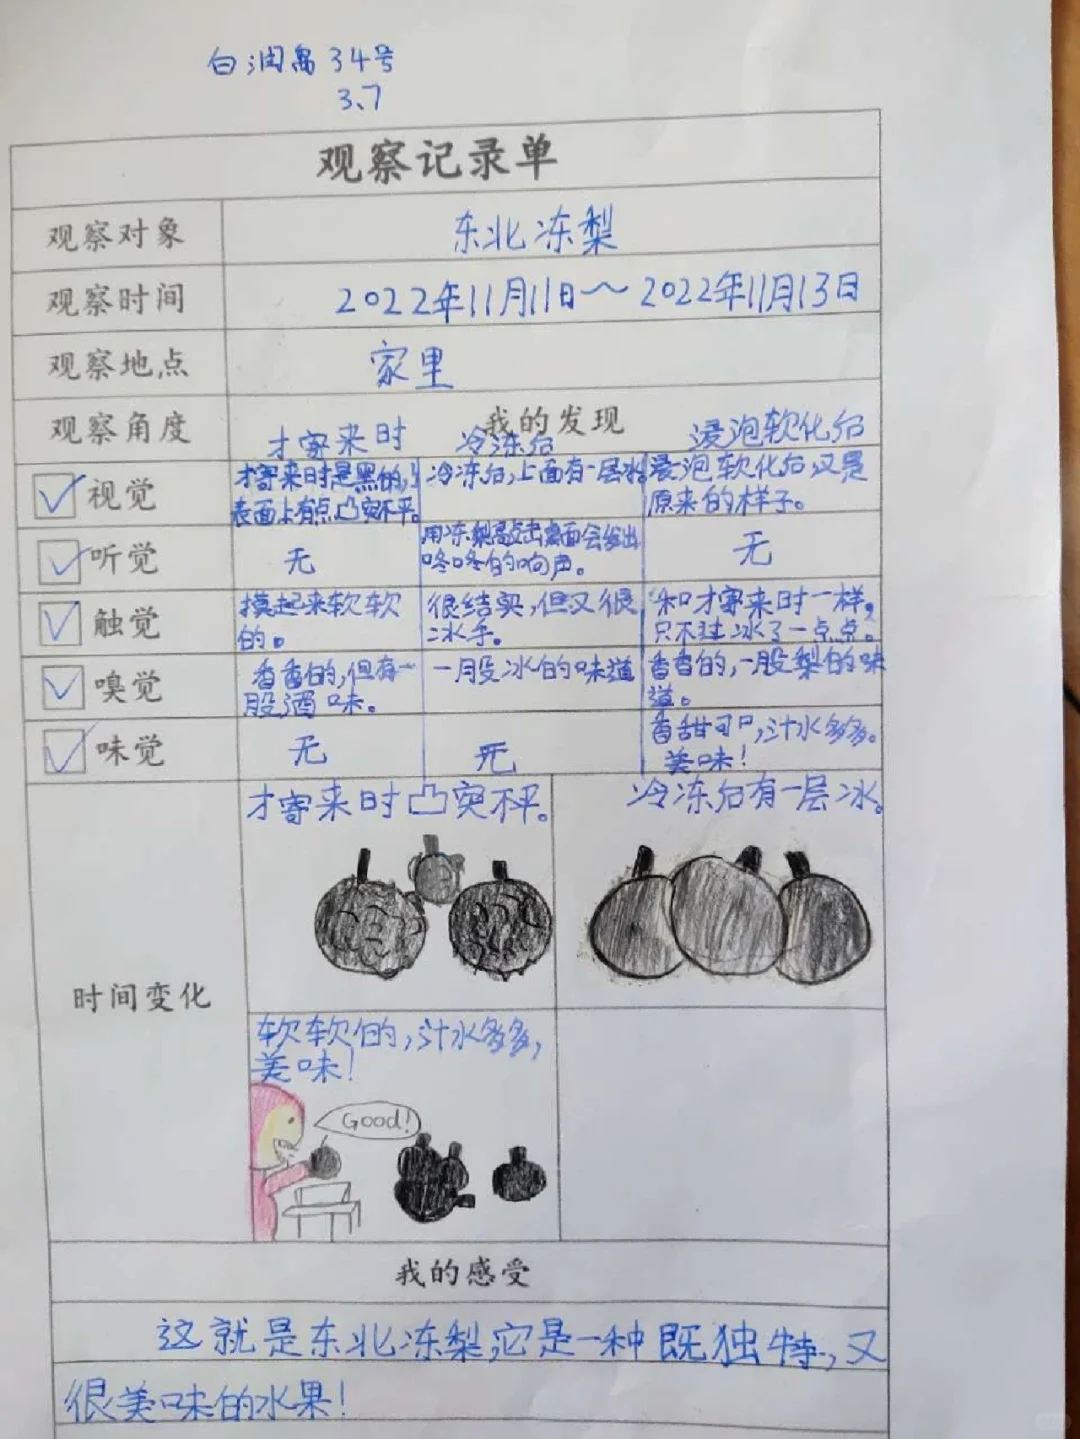 白润禺34号
3、7
观察记录单
观察对象 东北冻梨
观察时间 2022年11月11日～2022年11月13日
观察地点 家里
观察角度 我的发现
才寄来时 冷冻后 浸泡软化后
视觉 才寄来时是黑的，表面上有点凸突不平。 冷冻后，上面有一层冰。 浸泡软化后又是
原来的样子。
听觉 无 用冻梨敲击桌面会发出
咚咚的响声。 无
触觉 摸起来软软
的。 很结实，但又很
冰手。 和才寄来时一样，
只不过冰了一点点。
嗅觉 香香的，但有一
股酒味。 一股冰的味道 香香的，一股梨的味
道。
味觉 无 无 香甜可口，汁水多多。
美味！
时间变化
才寄来时凸突不平。 冷冻后有一层冰。
软软的，汁水多多，
美味！
Good!
我的感受
这就是东北冻梨，它是一种既独特，又
很美味的水果！